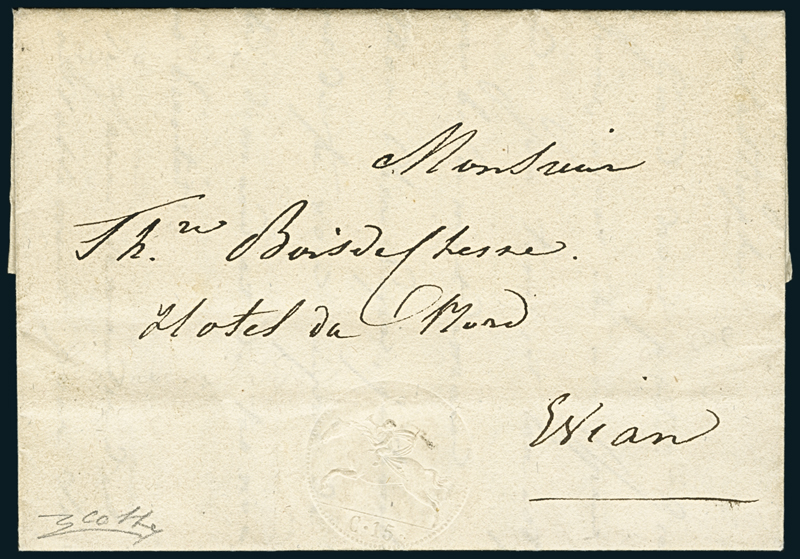 Monsieur
Th.re BoisdeChesne.
Hotel du Nord
Evian
C. 15